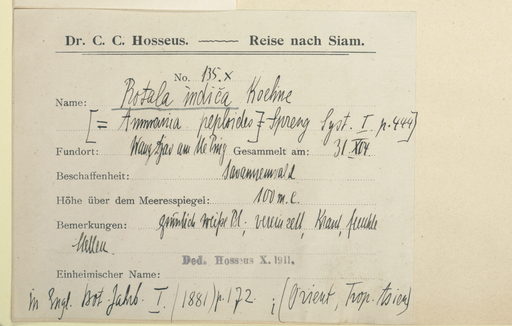 Dr. C. C. Hosseus. Reise nach Siam.
No. 135.x
Name: Rotala indica Koehne
[= Ammania peploides] = Spreng Syst. I. p. 444]
Fundort: am Me Ping Gesammelt am: 31 XII 04.
Beschaffenheit: Savannenwald
Höhe über dem Meeresspiegel: 100 m. c.
Bemerkungen: grünlich weiße Bl., vereinzelt, Kraut, feuchte
Stellen.
Ded. Hosseus X. 1911.
Einheimischer Name:
in Engl. Bot. Jahrb. I. (1881) p. 172. ; (Orient, Trop. Asien)